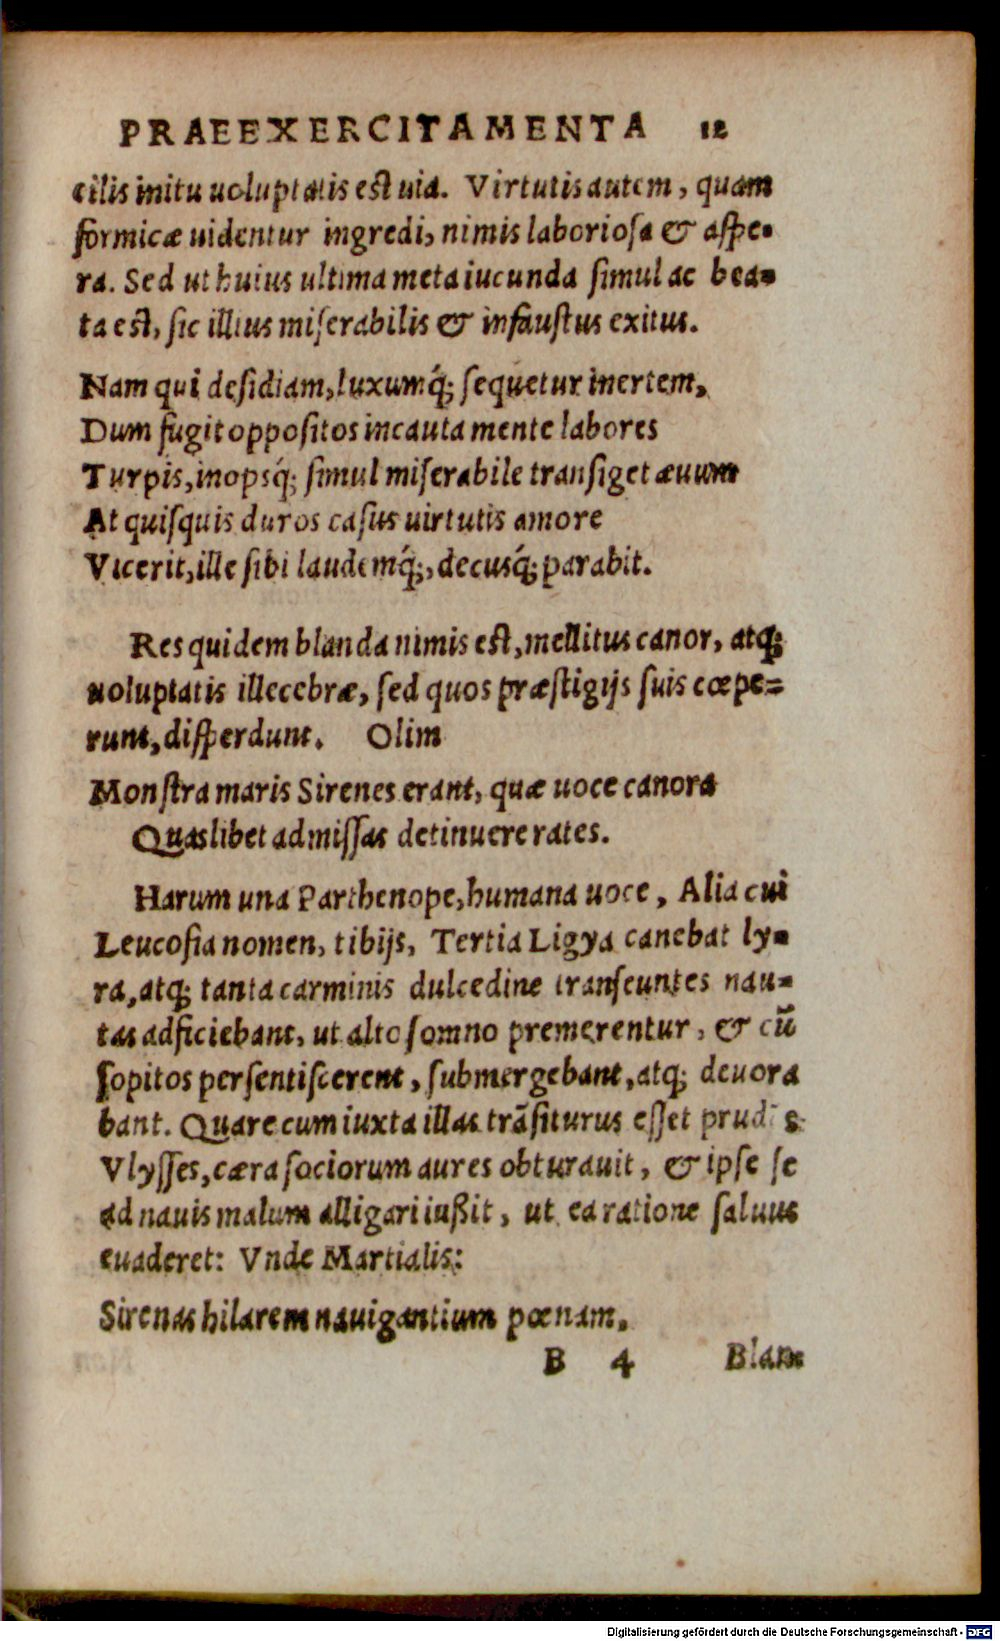 PRAEEXERCITAMENTA 12
cilis initu uoluptatis est uia. Virtutis autem, quam
formicæ uidentur ingredi, nimis laboriosa & aspe-
ra. Sed ut huius ultima meta iucunda simul ac bea-
ta est, sic illius miserabilis & infaustus exitus.
Nam qui desidiam, luxumq́; sequetur inertem,
Dum fugit oppositos incauta mente labores
Turpis, inopsq́; simul miserabile transiget æuum
At quisquis duros casus uirtutis amore
Vicerit, ille sibi laudemq́;, decusq́; parabit.
Res quidem blanda nimis est, mellitus canor, atq;
uoluptatis illecebræ, sed quos præstigijs suis cœpe-
runt, disperdunt. Olim
Monstra maris Sirenes erant, quæ uoce canora
Quaslibet admissas detinuere rates.
Harum una Parthenope, humana uoce, Alia cui
Leucosia nomen, tibijs, Tertia Ligya canebat ly-
ra, atq; tanta carminis dulcedine transeuntes nau-
tas adficiebant, ut alto somno premerentur, & cũ
sopitos persentiscerent, submergebant, atq; deuora
bant. Quare cum iuxta illas trãsiturus esset
Vlysses, cæra sociorum aures obturauit, & ipse se
ad nauis malum alligari iußit, ut ea ratione saluus
euaderet: Vnde Martialis:
Sirenas hilarem nauigantium pœnam,
B 4 Blan
Digitalisierung gefördert durch die Deutsche Forschungsgemeinschaft - DFG